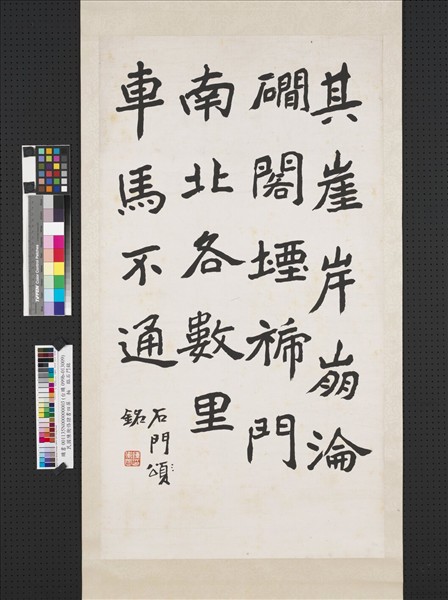 其崖岸崩淪
磵閣堙褫門
南北各數里
車馬不通
石門頌
銘